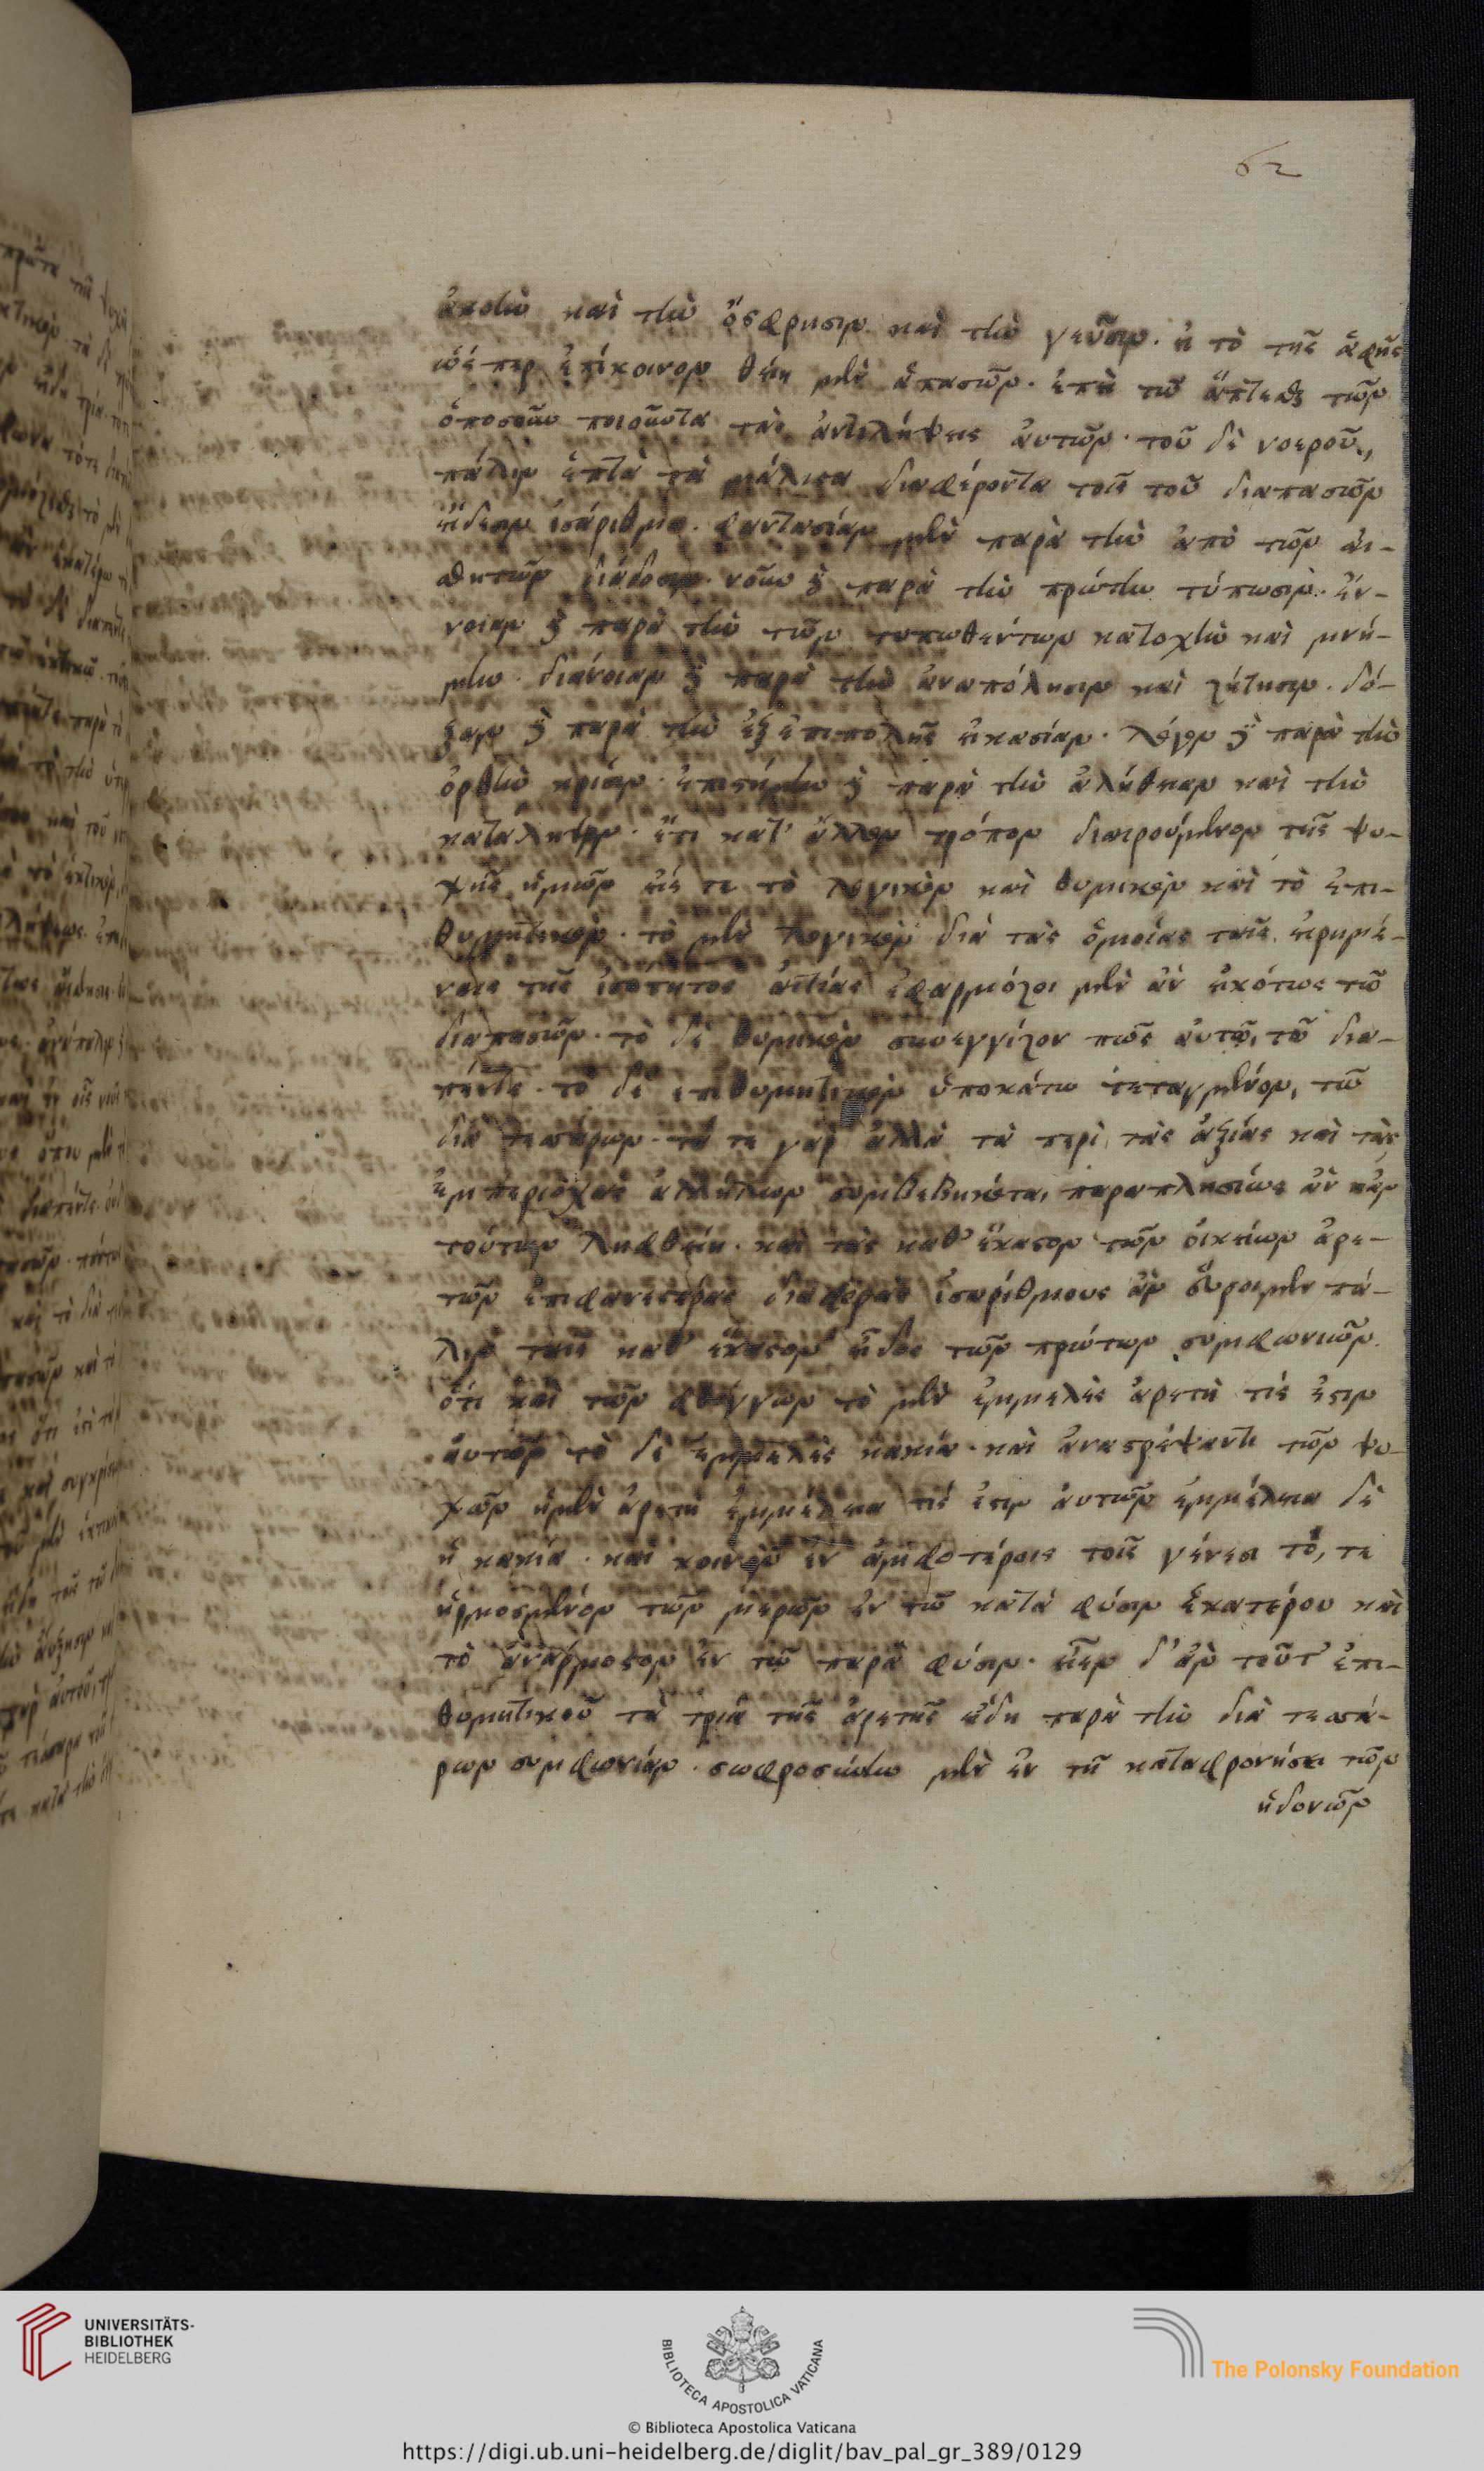 62
ἀκοὴν καὶ τὴν ὄσφρησιν καὶ τὴν γεῦσιν. εἰ τὸ τῆς ἁφῆς
ὥσπερ ἐπίκοινον θείη μὲν ἁπασῶν. ἐπεὶ τῶ ἅπτεσθαι τῶν
ὁποσοῦν ποιοῦντα τὰς ἀντιλήψεις ἀυτῶν. τοῦ δὲ νοεροῦ,
πάλιν ἑπτὰ τὰ μάλιστα διαφέροντα τοῖς τοῦ διαπασῶν
εἴδεσιν ἰσάριθμα. φαντασίαν μὲν παρὰ τὴν ἀπὸ τῶν ἀι-
σθητῶν διάδοσιν. νοῦν δὲ παρὰ τὴν πρώτην τύπωσιν. ἔν-
νοιαν δὲ παρὰ τὴν τῶν τυπωθέντων κατοχὴν καὶ μνή-
μην. διάνοιαν δὲ παρὰ τὴν ἀναπόλησιν καὶ ζήτησιν. δό-
ξαν δὲ παρὰ τὴν ἐξεπιπολῆς εἰκασίαν. λόγον δὲ παρὰ τὴν
ὀρθὴν κρίσιν. ἐπιστήμην δὲ παρὰ τὴν ἀλήθειαν καὶ τὴν
κατάληψιν. ἔτι κατ' ἄλλον τρόπον διαιρούμενον τῆς ψυ-
χῆς ἡμῶν εἴς τε τὸ λογικὸν καὶ θυμικὸν καὶ τὸ ἐπι-
θυμητικὸν. τὸ μὲν λογικὸν διὰ τὰς ὁμοίας ταῖς εἰρημέ-
ναις τῆς ἰσότητος ἀιτίας ἐφαρμόζοι μὲν ἂν εἰκότως τῶ
διαπασῶν. τὸ δὲ θυμικὸν συνεγγίζον πῶς ἀυτῶ, τῶ δια-
πέντε. τὸ δὲ ἐπιθυμητικὸν ὑποκάτω τεταγμένον, τῶ
διὰ τεσσάρων. τά τε γὰρ ἄλλα τὰ περὶ τὰς ἀξίας καὶ τὰς
ἐμπεριοχὰς ἀλλήλων συμβεβηκότα, παραπλησίως ἂν κἀν
τούτων ληφθείη. καὶ τὰς καθ' ἕκαστον τῶν ὀικείων ἀρε-
τῶν ἐπιφανεστέρας διαφορὰς ἰσαρίθμους ἂν ἕυροιμεν πά-
λιν ταῖς καθ' ἕκαστον εἶδος τῶν πρώτων συμφωνιῶν.
ὅτι καὶ τῶν φθόγγων τὸ μὲν ἐμμελὲς ἀρετή τίς ἐστιν
ἀυτῶν τὸ δὲ ἐμμελὲς κακία. καὶ ἀναστρέψαντι τῶν ψυ-
χῶν ἡ μὲν ἀρετὴ ἐμμέλεια τίς ἐστιν ἀυτῶν ἐμμέλεια δὲ
ἡ κακία. καὶ κοινὸν ἐν ἀμφοτέροις τοῖς γένεσι τό, τε
ἡρμοσμένον τῶν μερῶν ἐν τῶ κατὰ φύσιν ἑκατέρου καὶ
τὸ ἀνάρμοστον ἐν τῶ παρὰ φύσιν. εἶεν δ' ἂν τοῦτ' ἐπι-
θυμητικοῦ τὰ τρία τῆς ἀρετῆς εἴδη παρὰ τὴν διὰ τεσσά-
ρων συμφωνίαν. σωφροσύνην μὲν ἐν τῇ καταφρονήσει τῶν
ἡδονῶν
UNIVERSITÄTS-
BIBLIOTHEK
HEIDELBERG
BIBLIOTECA APOSTOLICA VATICANA
The Polonsky Foundation
© Biblioteca Apostolica Vaticana
https://digi.ub.uni-heidelberg.de/diglit/bav_pal_gr_389/0129